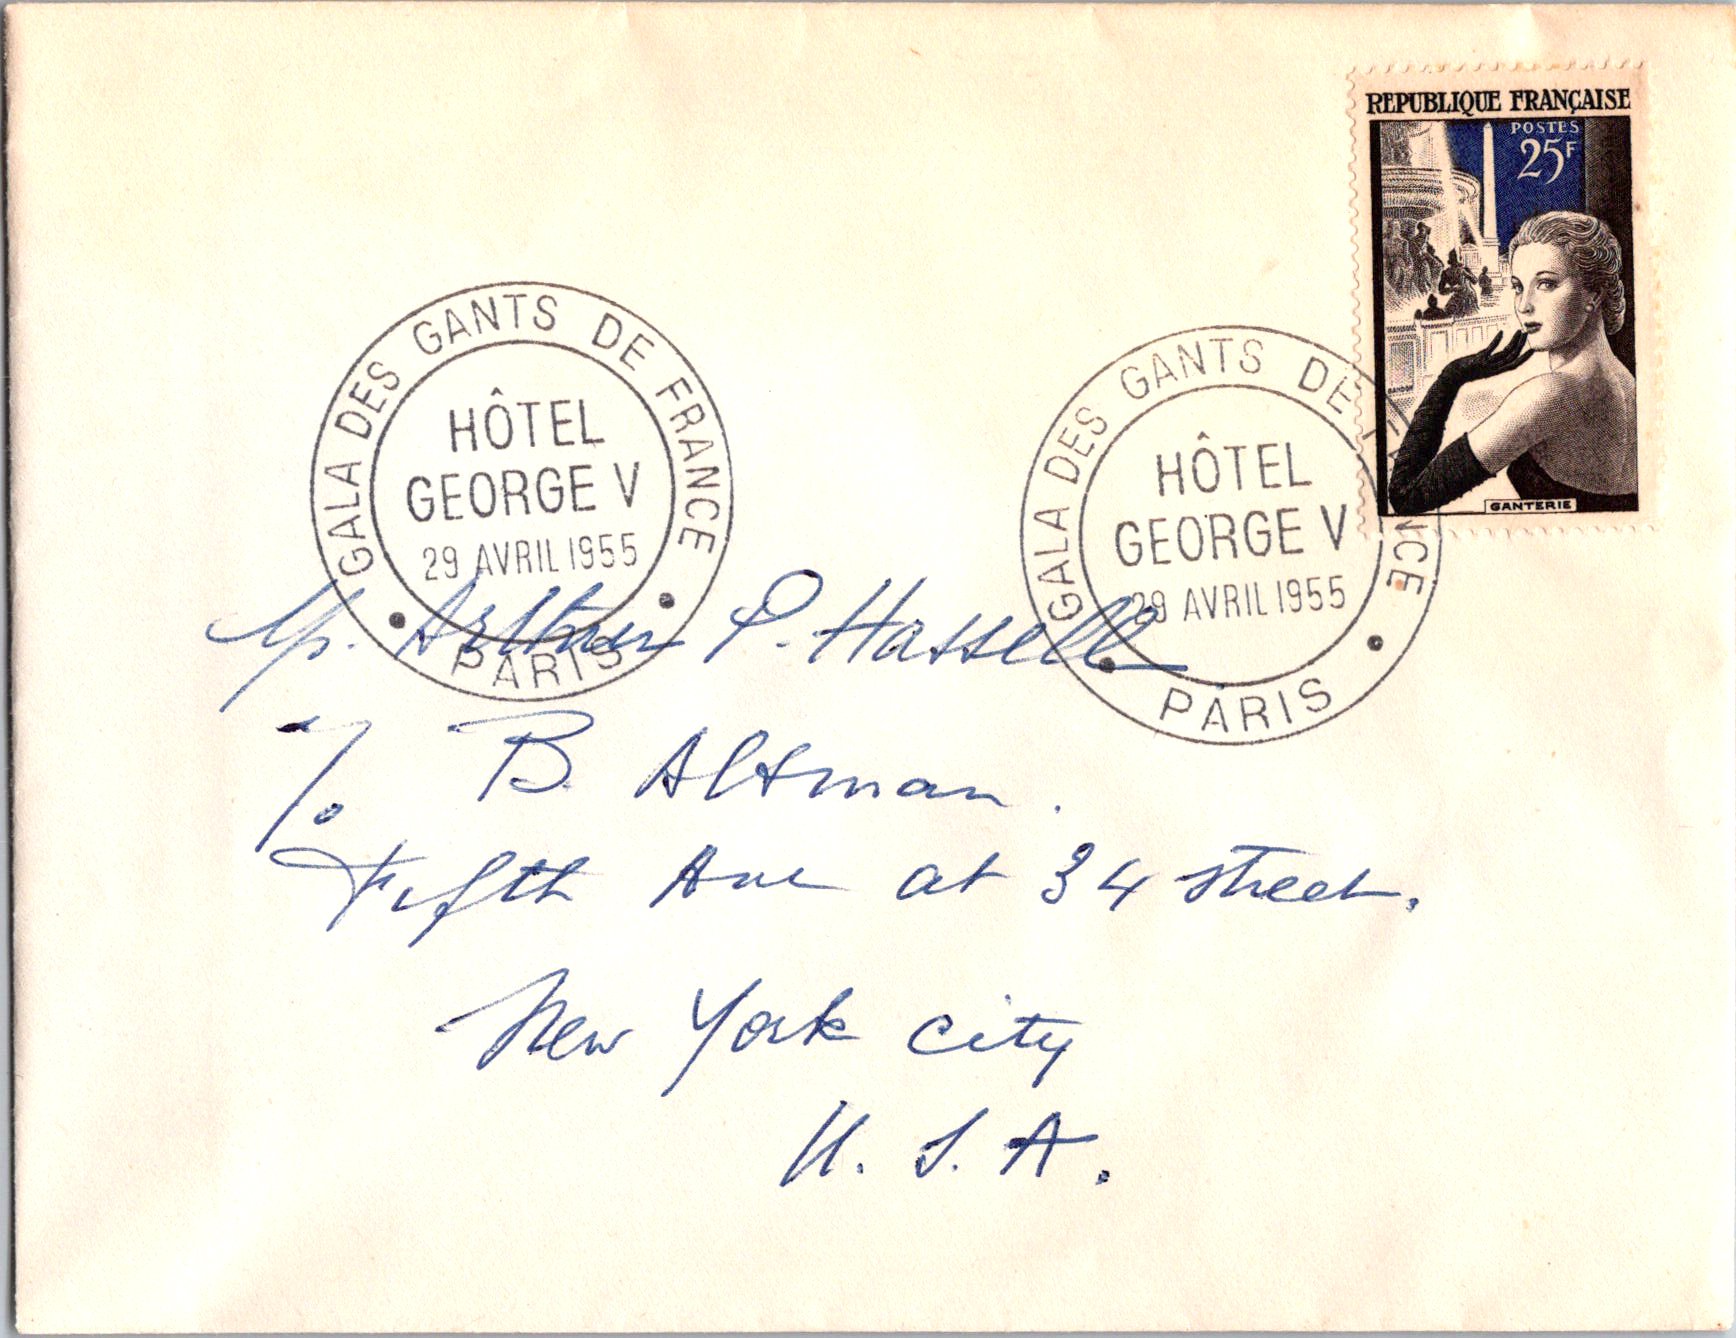 REPUBLIQUE FRANÇAISE
POSTES
25F
GANDON
GANTERIE
GALA DES GANTS DE FRANCE
HÔTEL
GEORGE V
29 AVRIL 1955
PARIS
GALA DES GANTS DE FRANCE
HÔTEL
GEORGE V
29 AVRIL 1955
PARIS
Mr. Arthur P. Hassell
c/o B Altman.
Fifth Ave at 34 street.
New York city
U. S. A.